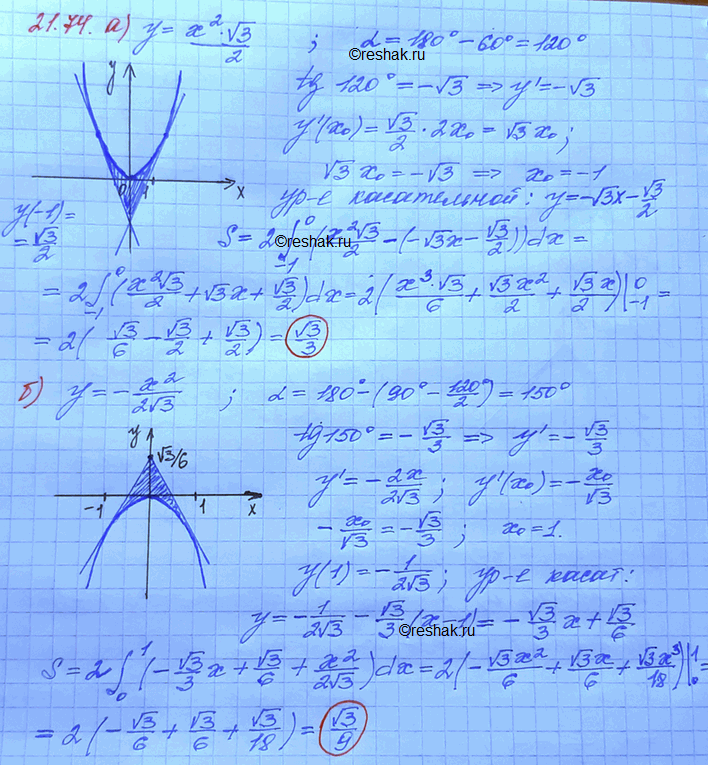 21.74. а) y = x²·√3/2 ; α = 180° − 60° = 120°
©reshak.ru
tg 120° = −√3 => y' = −√3
y'(x₀) = √3/2 · 2x₀ = √3 x₀ ;
√3 x₀ = −√3 => x₀ = −1
ур-е касательной: y = −√3x − √3/2
y
0 1 x
y(−1) =
= √3/2
S = 2∫₋₁⁰ (x²√3/2 − (−√3x − √3/2))dx =
©reshak.ru
= 2∫₋₁⁰ (x²√3/2 + √3x + √3/2)dx = 2(x³·√3/6 + √3x²/2 + √3x/2)|₋₁⁰ =
= 2(√3/6 − √3/2 + √3/2) = √3/3
б) y = −x²/2√3 ; α = 180° − (90° − 120°/2) = 150°
tg150° = −√3/3 => y' = −√3/3
y
√3/6
−1 1 x
y' = −2x/2√3 ; y'(x₀) = −x₀/√3
−x₀/√3 = −√3/3 ; x₀ = 1.
y(1) = −1/2√3 ; ур-е касат:
y = −1/2√3 − √3/3 (x−1) = −√3/3 x + √3/6
©reshak.ru
S = 2∫₀¹ (−√3/3 x + √3/6 + x²/2√3)dx = 2(−√3x²/6 + √3x/6 + √3x³/18)|₀¹ =
= 2(−√3/6 + √3/6 + √3/18) = √3/9